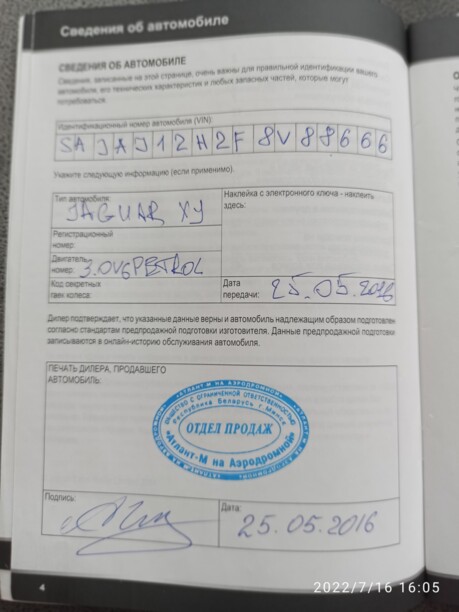 Сведения об автомобиле
СВЕДЕНИЯ ОБ АВТОМОБИЛЕ
Сведения, записанные на этой странице, очень важны для правильной идентификации вашего
автомобиля, его технических характеристик и любых запасных частей, которые могут
потребоваться.
Идентификационный номер автомобиля (VIN):
SAJAJ12H2F8V88666
Укажите следующую информацию (если применимо).
Тип автомобиля:
JAGUAR XJ
Наклейка с электронного ключа - наклеить
здесь:
Регистрационный
номер:
Двигатель
номер: 3.0V6PETROL
Код секретных
гаек колеса:
Дата
передачи: 25.05.2016
Дилер подтверждает, что указанные данные верны и автомобиль надлежащим образом подготовлен
согласно стандартам предпродажной подготовки изготовителя. Данные предпродажной подготовки
записываются в онлайн-историю обслуживания автомобиля.
ПЕЧАТЬ ДИЛЕРА, ПРОДАВШЕГО
АВТОМОБИЛЬ:
ОБЩЕСТВО С ОГРАНИЧЕННОЙ ОТВЕТСТВЕННОСТЬЮ
Республика Беларусь г. Минск
ОТДЕЛ ПРОДАЖ
«Атлант-М на Аэродромной»
Подпись:
Дата:
25.05.2016
4
2022/7/16 16:05